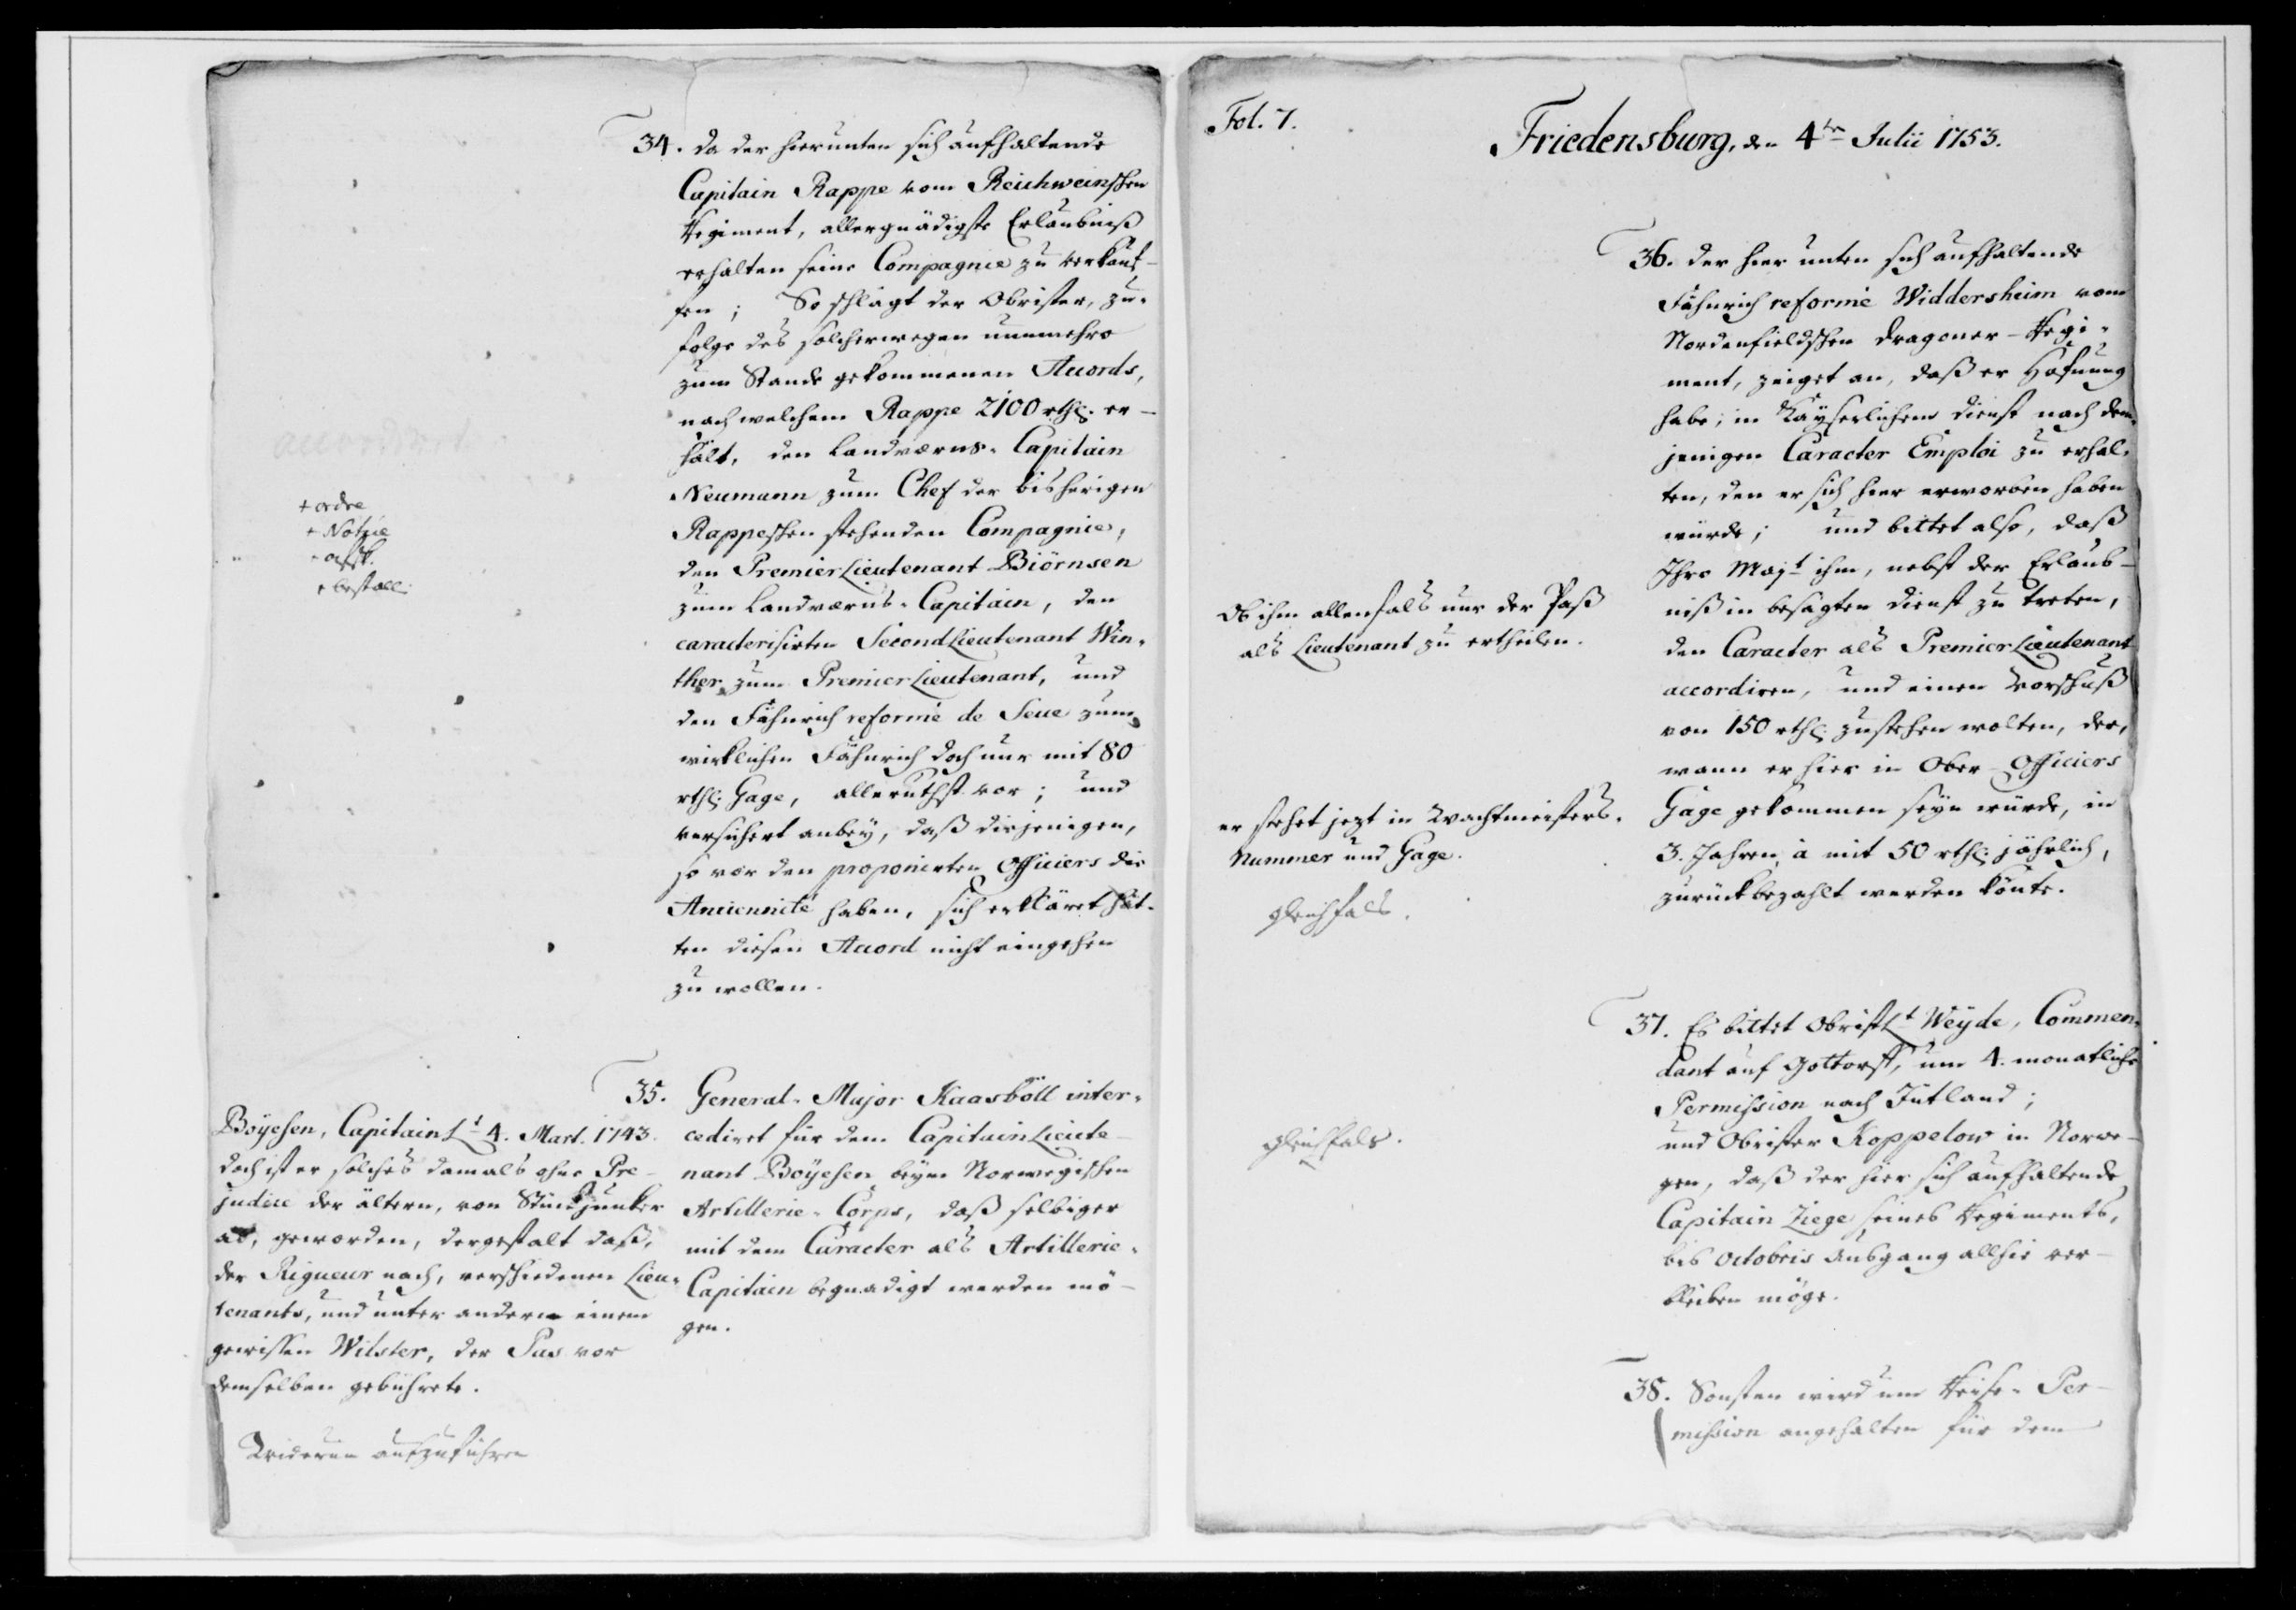 34. da der hierunten sich aufhaltende
Capitain Rappe vom Reichweinschen
Regiment, allergnädigste Erlaubniß
erhalten seine Compagnie zu verkauf-
fen; So schlägt der Obrister, zu-
folge des solcherwegen nunmehro
zum Stande gekommenen Accords,
nach welchem Rappe 2100 rthl. er-
hält, den Landværns-Capitain
Neumann zum Chef der bisherigen
Rappeschen stehenden Compagnie,
den PremierLieutenant Biörnsen
zum Landværns-Capitain, den
caracterisirten SecondLieutenant Win-
ther zum PremierLieutenant, und
den Fähnrich reformé de Seue zum
wirklichen Fähnrich doch nur mit 80
rthl. Gage, allerunthst vor; und
versichert anbey, daß diejenigen,
so vor den proponirten Officiers die
Anciennité haben, sich erkläret hät-
ten diesen Accord nicht eingehen
zu wollen.
accordirt.
+ ordre
+ Notzie
+ bestall.
35. General-Major Kaasböll inter-
cediret für dem CapitainLieute-
nant Boÿesen beym Norwegischen
Artillerie-Corps, daß selbiger
mit dem Caracter als Artillerie-
Capitain begnadigt werden mö-
gen.
Boÿesen, CapitainLt 4. Mart. 1743.
doch ist er solches damals ohne Pre-
judice der ältern, von Stückjunker
ab, geworden, dergestalt daß,
der Rigueur nach, verschiedenen Lieu-
tenants, und unter andern einem
gewissen Wilster, der Pas vor
demselben gebührete.
Wiederum aufzuführen
Fol. 7.
Friedensburg, den 4ten Julii 1753.
36. der hier unten sich aufhaltende
Fähnrich reformé Widdersheim vom
Nordenfieldschen Dragoner-Regi-
ment, zeiget an, daß er Hofnung
habe, in Kayserlichem Dienst nach dem-
jenigen Caracter Emploi zu erhal-
ten, den er sich hier erworben haben
würde; und bittet also, daß
Ihro Majt ihm, nebst der Erlaub-
niß in besagten Dienst zu treten,
den Caracter als PremierLieutenant
accordiren, und einen Vorschuß
von 150 rthl. zustehen wolten, der,
wann er hier in Ober-Officiers
Gage gekommen seyn würde, in
3. Jahren, a mit 50 rthl. jährlich,
zurückbezahlt werden könte.
Ob ihm allenfals nur der Paß
als Lieutenant zu ertheilen.
er stehet jezt in Wachtmeisters-
Nummer und Gage.
gleichfals.
37. Es bittet ObristLt Weyde, Commen-
dant auf Gottorff, um 4. monatliche
Permission nach Jutland;
und Obrister Koppelow in Norwe-
gen, daß der hier sich aufhaltende
Capitain Ziege seines Regiments,
bis Octobris Ausgang allhie ver-
bleiben möge.
gleichfals.
38. Sonsten wird um Reise-Per-
mission angehalten für dem